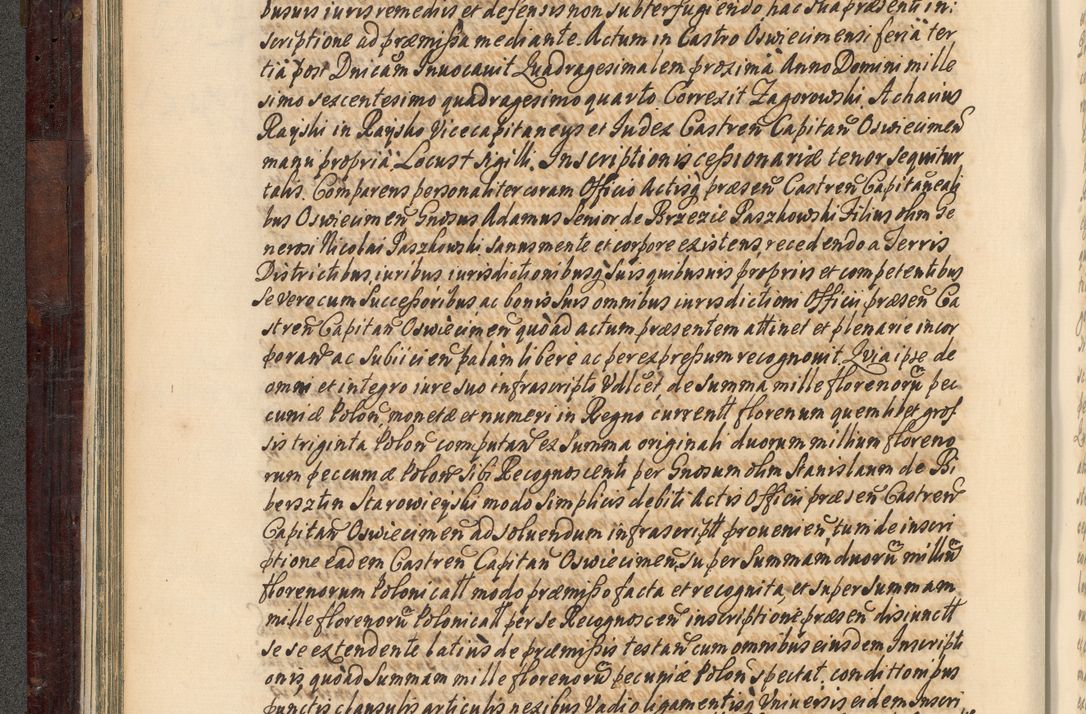 busuis iuris remediis et defensis non subterfugiendo hac sua præsenti in:
scriptione ad præmissa mediante. Actum in Castro Oswiecimensi feria ter
tia post Dnicam Inuocauit Quadragesimalem proxima Anno Domini mille
simo sexcentesimo quadragesimo quarto. Correxit Zagorowski. Achacius
Rayski in Raysko Vicecapitaneus et Judex Castren Capitan Oswiecimen
manu propria. Locus + sigilli. Inscriptionis cessionariæ tenor sequitur
talis. Comparens personaliter coram Officio Actisq præsen Castren Capitaneali
bus Oswiecimen Gnosus Adamus Senior de Brzezie Paszkowski Filius olim Ge
nerosi Nicolai Paszkowski sanus mente et corpore existens, recedendo a Terris
Districtibus iuribus iurisdictionibusq suis quibusuis propriis et competentibus
se vero cum Successoribus ac bonis suis omnibus iurisdictioni Officii præsen Ca
stren Capitan Oswiecimen quoad actum præsentem attinet et plenarie incor
poran ac subiicien palam libere ac per expressum recognouit. Quia ipse de
omni et integro iure suo infrascripto Vdlcet, de summa mille florenoru pec
cuniæ Polon, monetæ et numeri in Regno currentt florenum quemlibet gros
sis triginta Polon computan ex summa originali duorum millium floreno
rum peccuniæ Polon sibi Recognoscenti per Gnosum olim Stanislaum de Bi
bersztin Starowieyski modo simplicis debiti Actis Officii præsen Castren
Capitan Oswiecimen ad soluendum infrascriptt prouenien tum de inscri
ptione eadem Castren Capitan Oswiecimen, super summam duoru milliu
florenorum Polonicall modo præmisso facta et recognita, et super summam
mille florenoru Polonicall per se Recognoscen inscriptione præsen disiunctt
se se extendente latius de præmissis testan cum omnibus eiusdem Inscripti
onis quoad summam mille florenoru peccuniæ Polon spectat. conditionibus
punctis clausulis articulis nexibus Vadio ligamentisq Vniuersis eidem Inscri